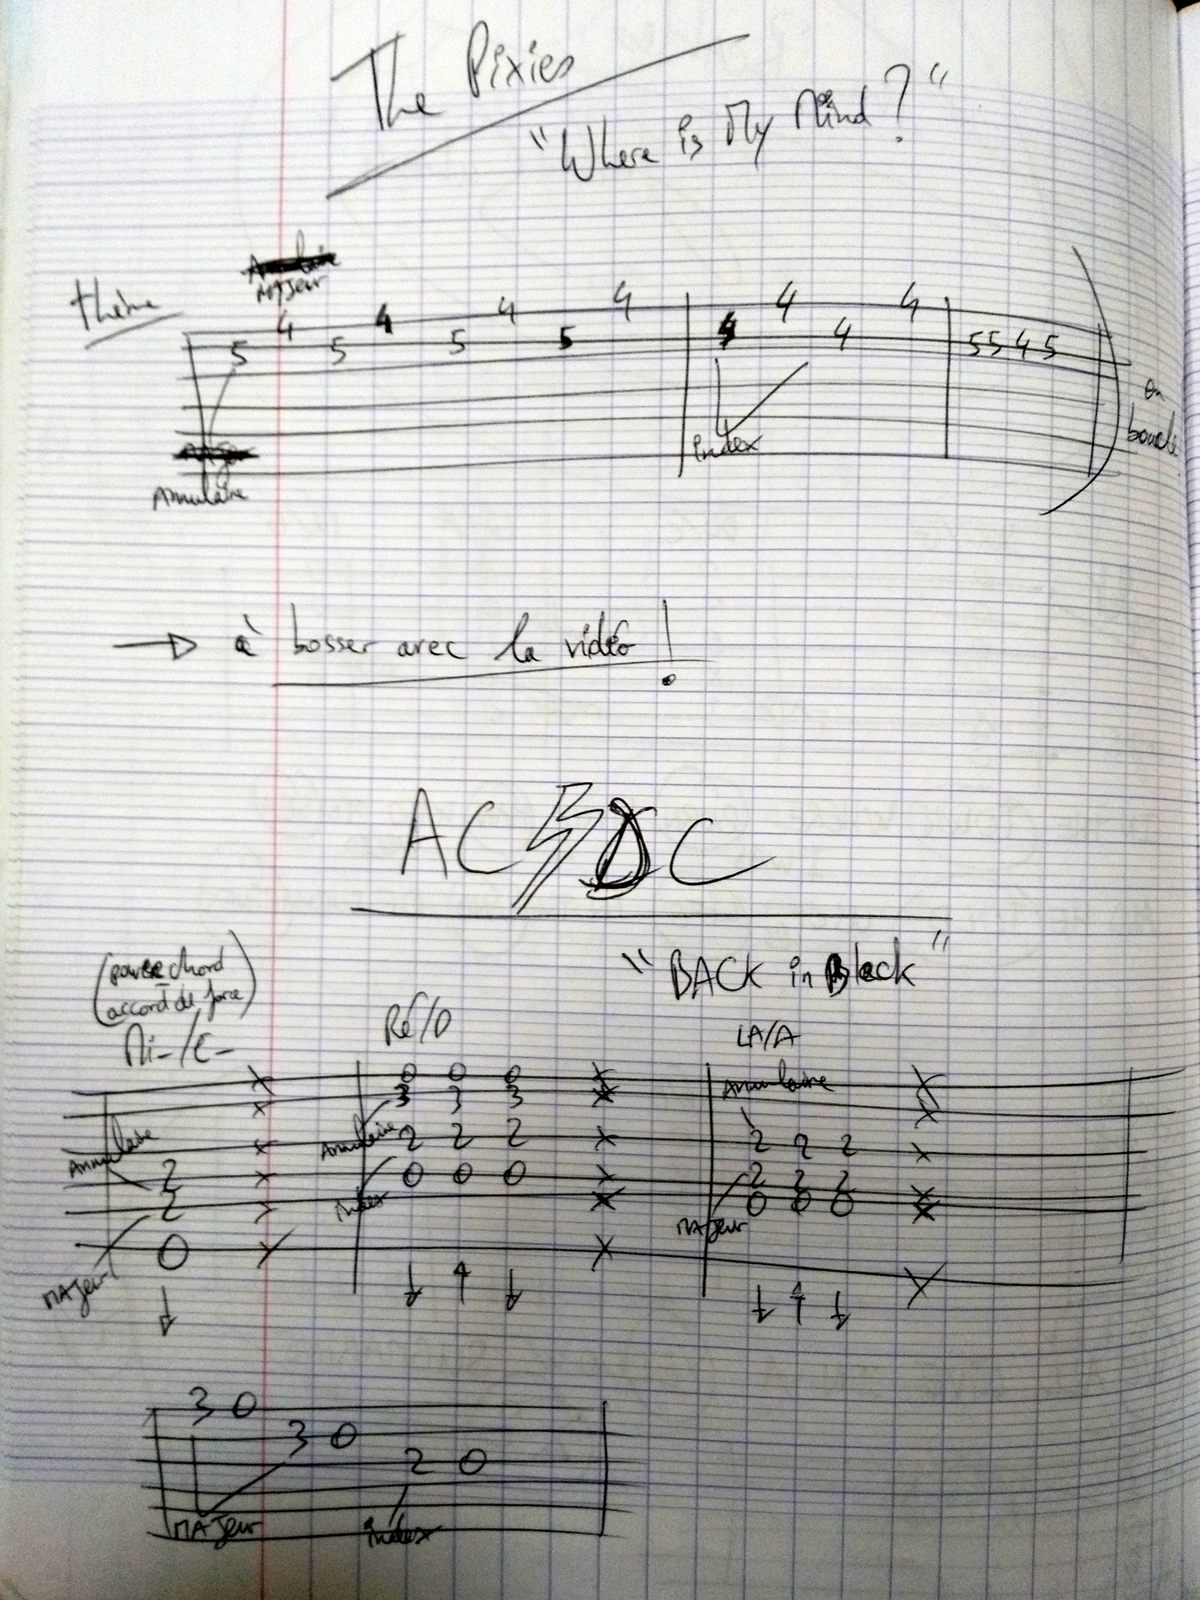 The Pixies
"Where is My Mind?"
thème
Majeur
4 4 4 4 4 4
5 5 5 5 4 4 5 5 4 5
index
Annulaire
en
boucle
→ à bosser avec la vidéo!
AC⚡DC
"BACK in Black"
(power chord
accord de force)
Mi-/E-
Ré/D
LA/A
X 0 0 0 X Annulaire X
X 3 3 3 X X
Annulaire X Annulaire 2 2 2 X 2 2 2 X
2 X 0 0 0 X 2 2 2 X
2 X index X 0 0 0 X
Majeur 0 X X Majeur X
↓ ↓ ↑ ↓ ↓ ↑ ↓
3 0
3 0
2 0
MAJeur index